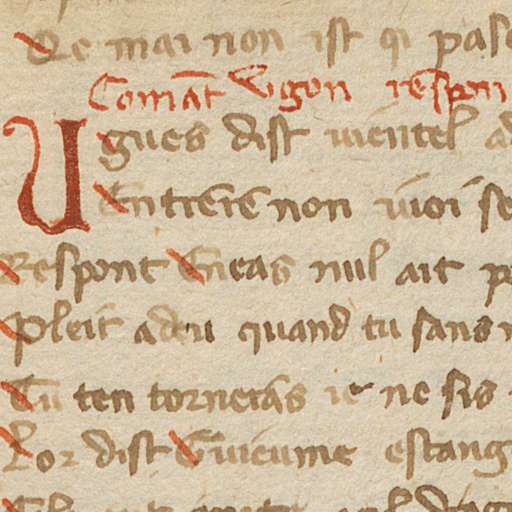 Qe mai non ist qi pas
Comāt Vgon respon
Ugues dist uientel a
Entrere non uoi se
Respont Eneas nul ait p
Pleit a deu quand tu sans
Tu ten torneras ie ne sis
Lor dist Guieume estang